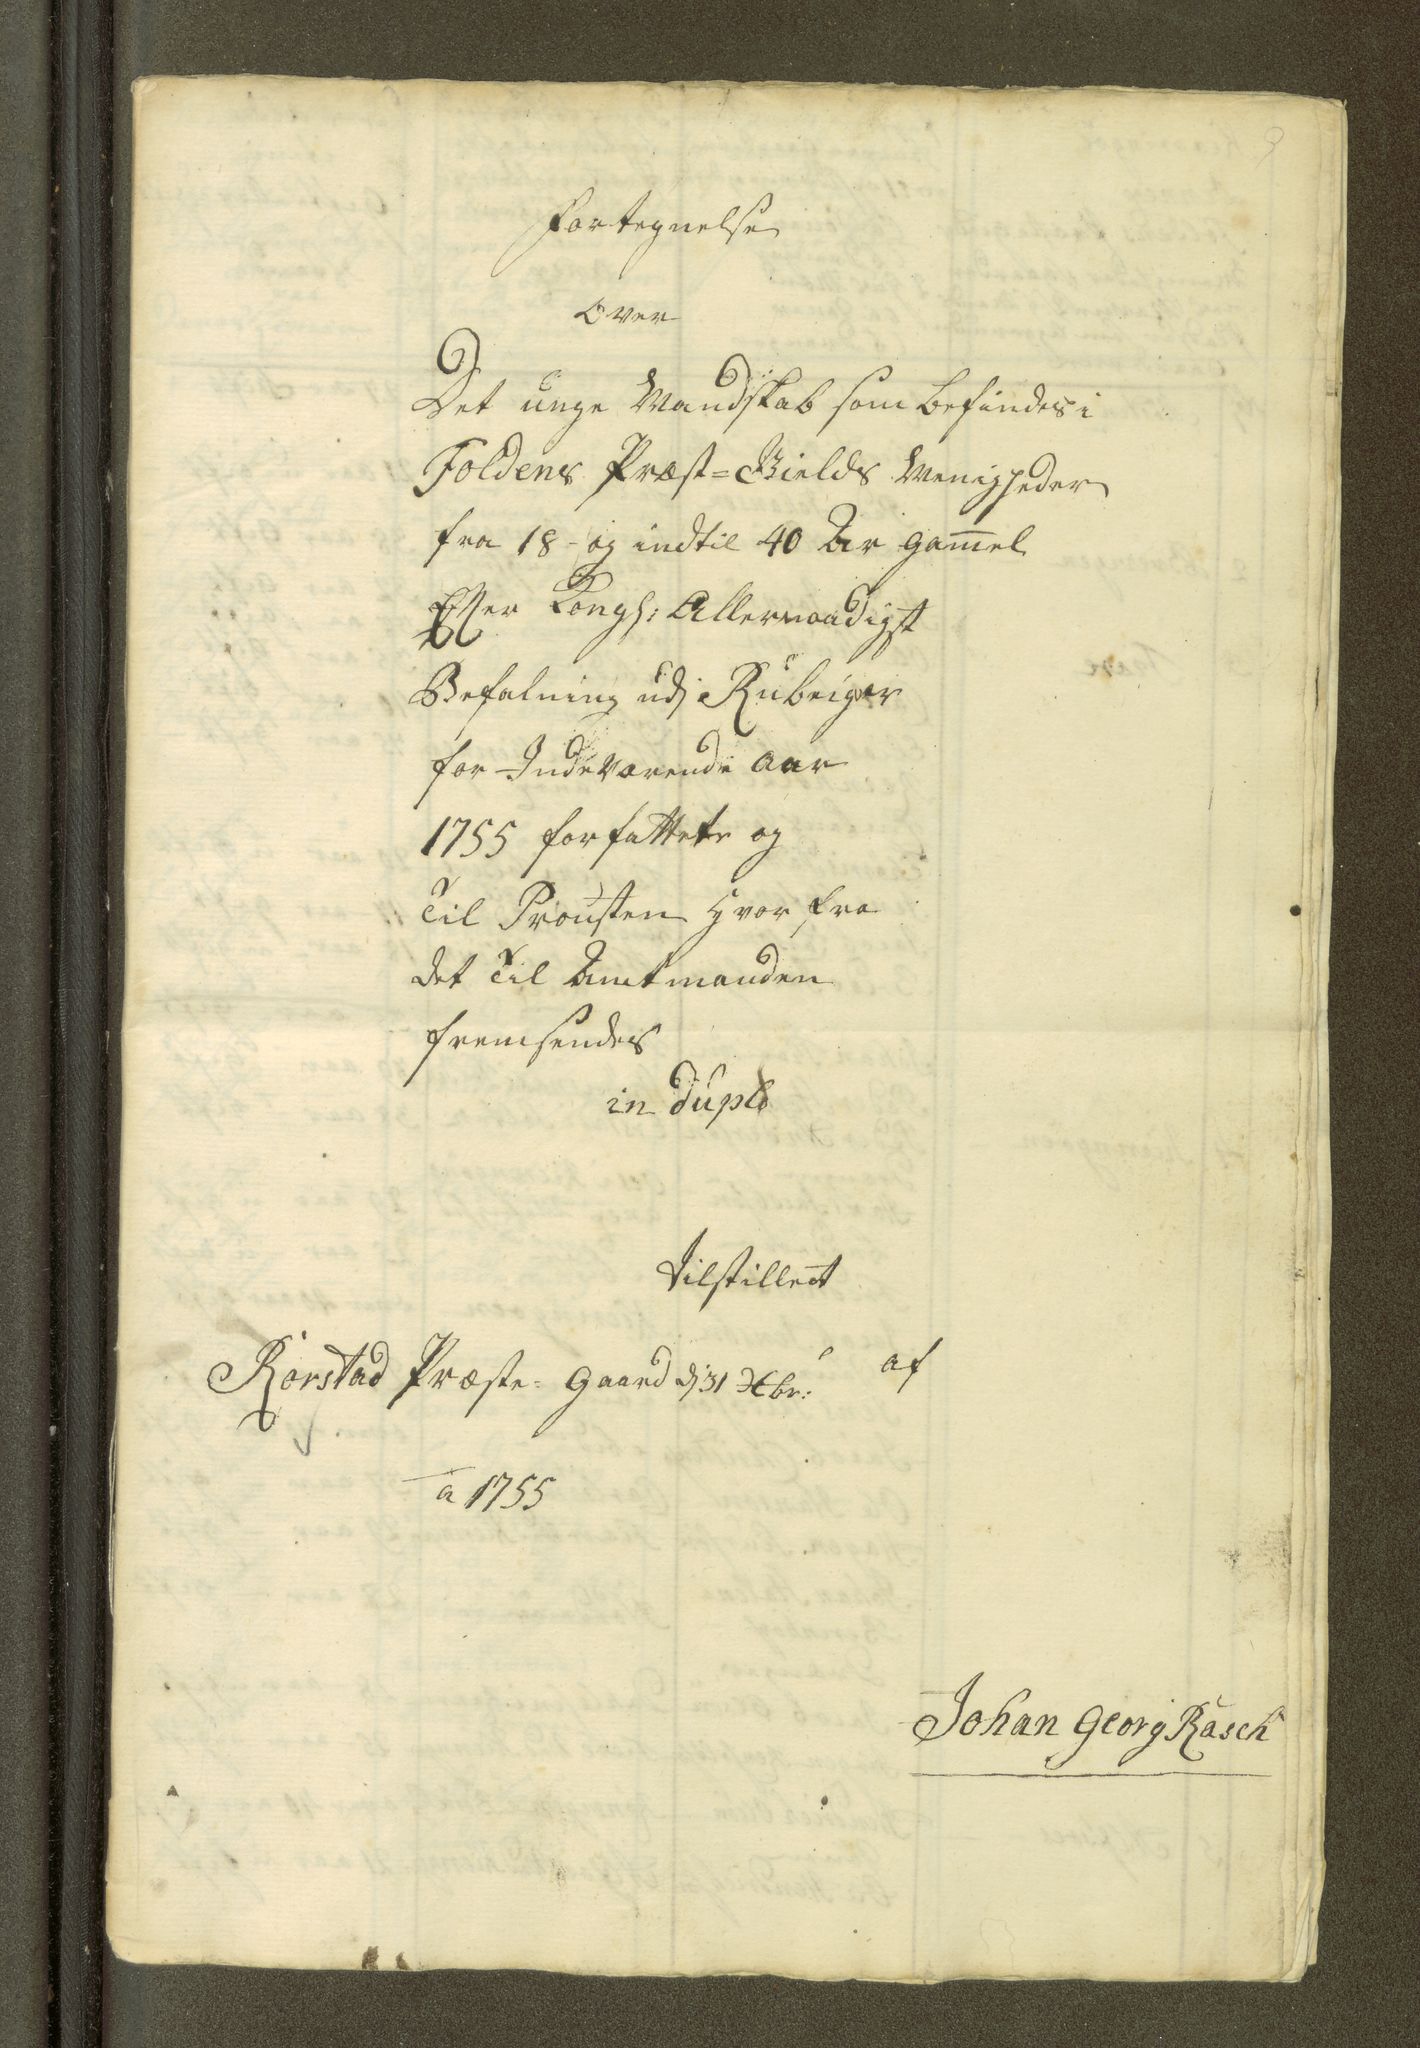 Fortegnelse
Over
Det unge Mandskab som befindes i
Foldens Præst=Gields Menigheder
fra 18 - og indtil 40 Aar gam̄el
Effter Kongl: Allernaadigst
Befalning udj Rubriqver
for Indeværende Aar
1755 forfattet og
Til Prousten hvor fra
det Til Amtmanden
fremsendes
in duplo
Tilstillet
Rørstad Præste= Gaard dj 31 Xbr: af
a 1755
Johan Georg Rasch